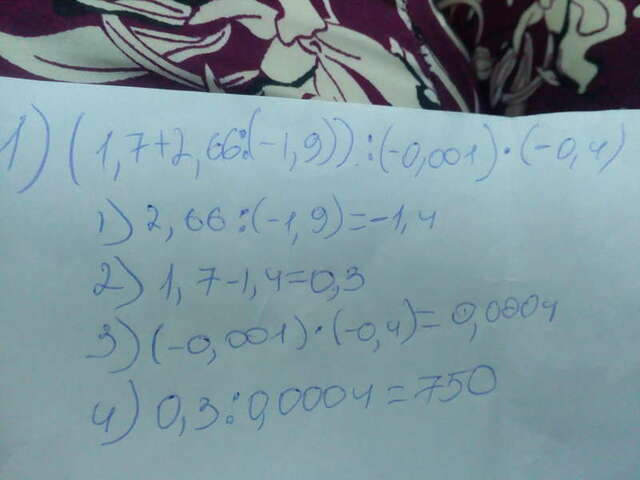 1) (1,7+2,66:(-1,9)):(-0,001)·(-0,4)
1) 2,66:(-1,9)=-1,4
2) 1,7-1,4=0,3
3) (-0,001)·(-0,4)=0,0004
4) 0,3:0,0004=750